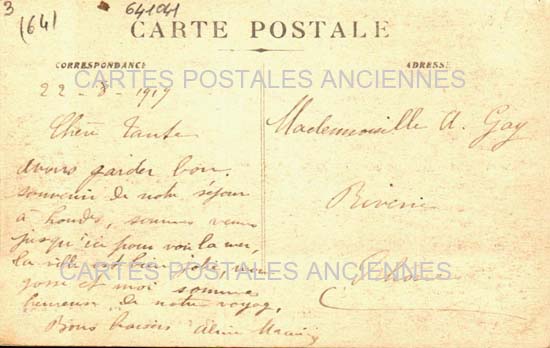 3
(64)
641041
CARTE POSTALE
CORRESPONDANCE
ADRESSE
CARTES POSTALES ANCIENNES
22-8-1919
Chère Tante
avons garder bon
souvenir de notre séjour
à sommes venus
jusqu'ici pour voir la mer,
la ville est bien jolie,
et moi sommes
heureux de notre voyage,
Bons baisers
Mademoiselle A. Gay
CARTES POSTALES ANCIENNES